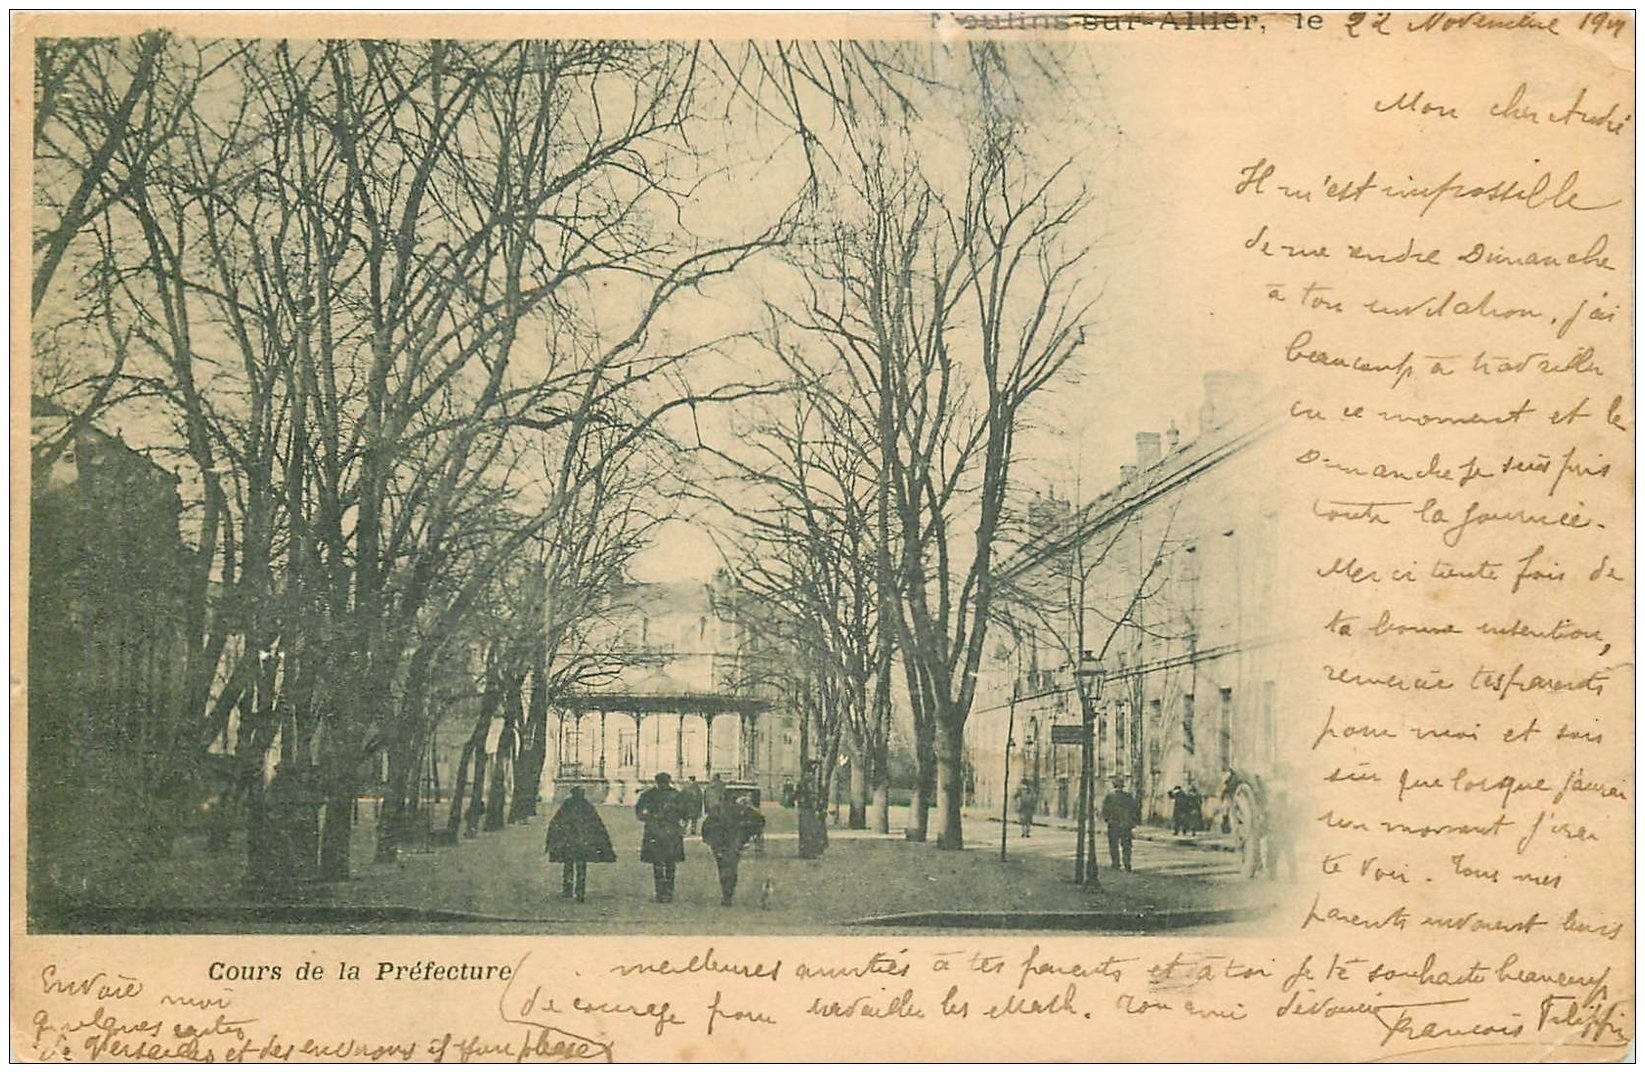 Moulins-sur-Allier, le 22 Novembre
Mon cher André
Il m'est impossible
de me rendre Dimanche
à ton invitation, j'ai
beaucoup à travailler
en ce moment et le
Dimanche je suis pris
toute la journée.
Merci toute fois de
ta bonne intention,
remercie tes parents
pour moi et sois
sûr que lorsque j'aurai
un moment j'irai
te voir. Tous mes
parents envoient leurs
meilleures amitiés à tes parents et à toi je te souhaite beaucoup
de courage pour travailler les Math. Ton ami dévoué
François
Cours de la Préfecture
Envoie moi
quelques cartes
de Versailles et des environs if you please